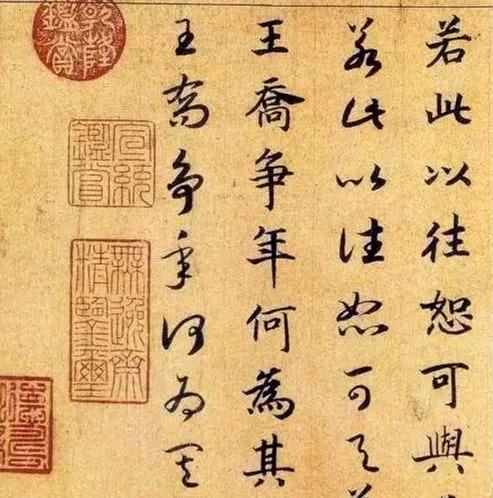 若此以往恕可與
若此以往恕可與
王喬爭年何為其
王喬爭年何為其
乾隆鑑賞
宣統鑑賞
無逸齋精鑒璽